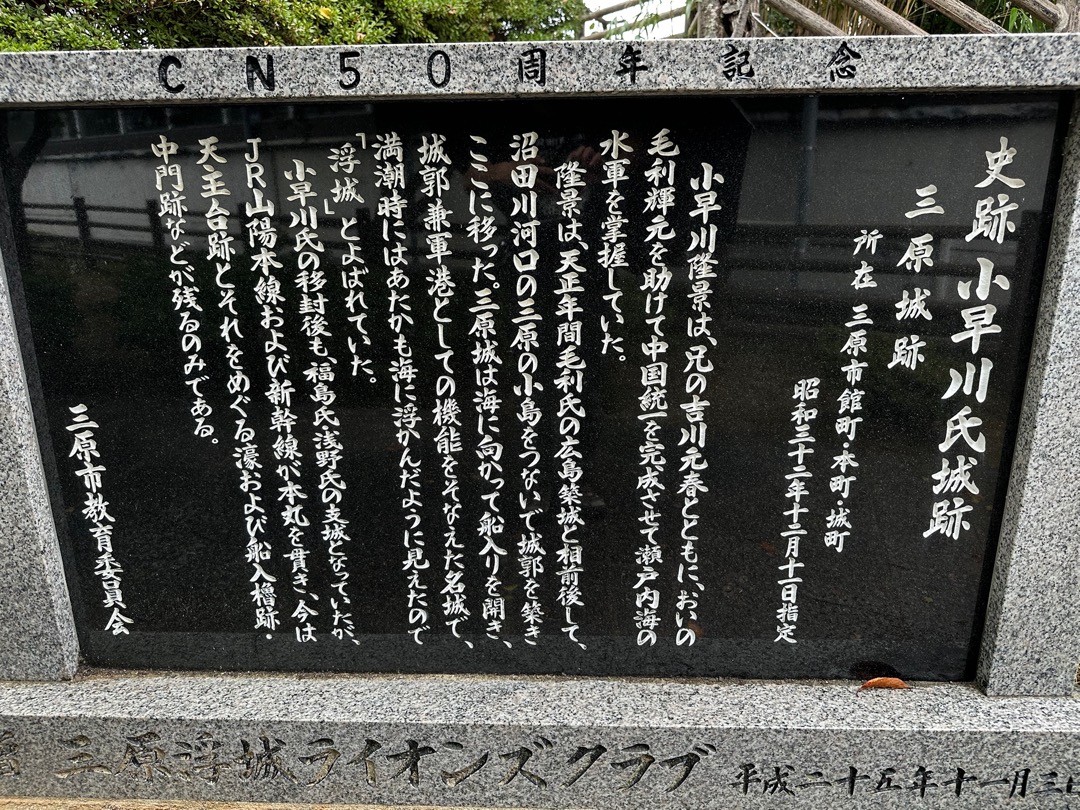 CN50周年記念
史跡 小早川氏城跡
三原城跡
所在 三原市館町・本町・城町
昭和三十二年十二月十一日指定
小早川隆景は、兄の吉川元春とともに、おいの
毛利輝元を助けて中国統一を完成させて瀬戸内海の
水軍を掌握していた。
隆景は、天正年間毛利氏の広島築城と相前後して、
沼田川河口の三原の小島をつないで城郭を築き
ここに移った。三原城は海に向かって船入りを開き、
城郭兼軍港としての機能をそなえた名城で、
満潮時にはあたかも海に浮かんだように見えたので
「浮城」とよばれていた。
小早川氏の移封後も、福島氏浅野氏の支城となっていたが、
JR山陽本線および新幹線が本丸を貫き、今は
天主台跡とそれをめぐる濠および船入櫓跡・
中門跡などが残るのみである。
三原市教育委員会
三原浮城ライオンズクラブ 平成二十五年十一月三